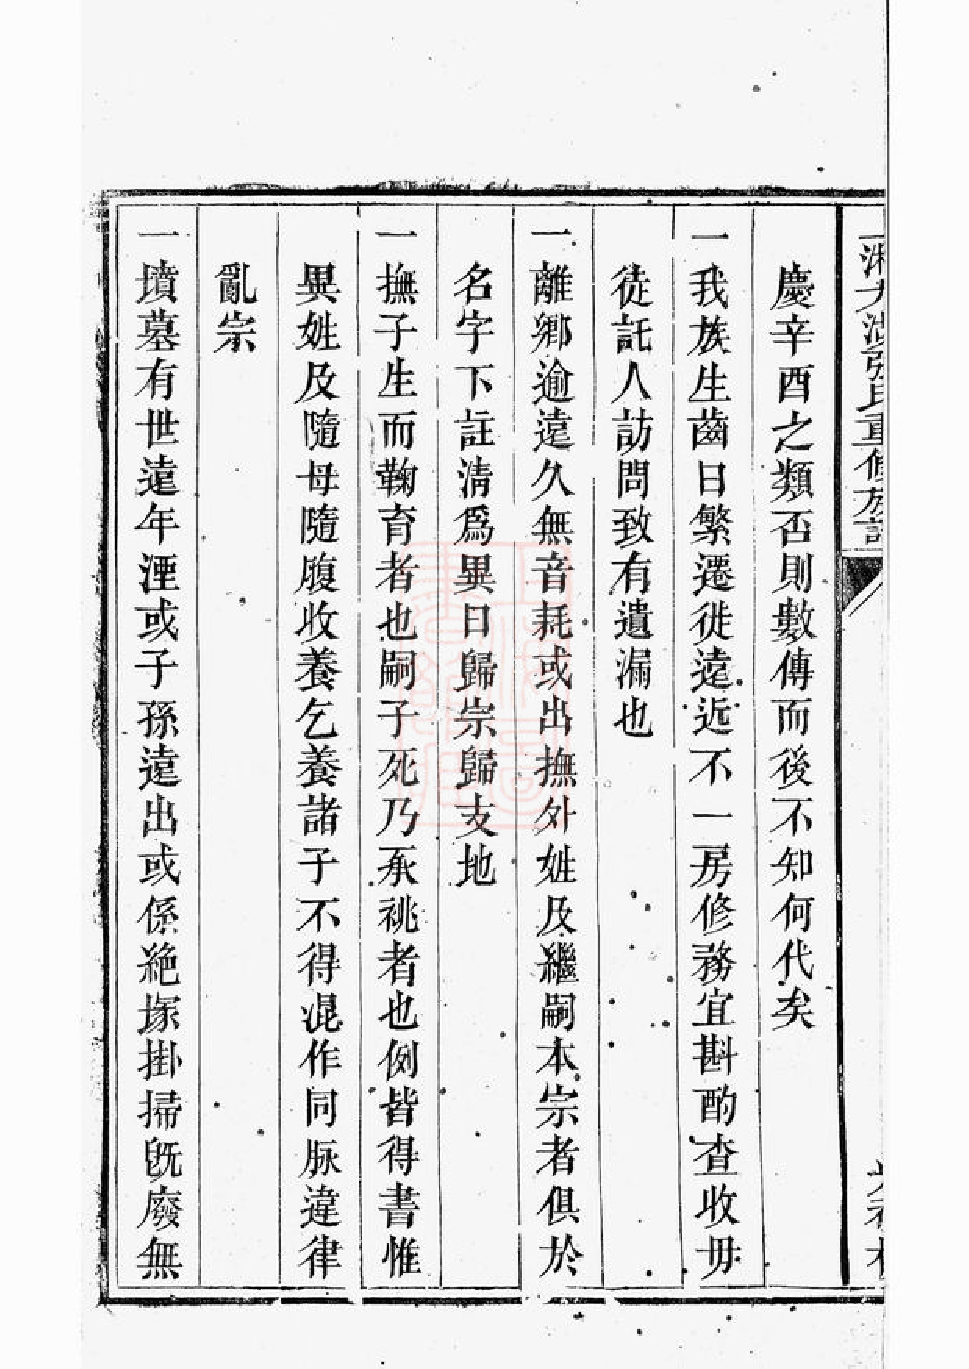 張氏重修族譜
慶辛酉之類否則數傳而後不知何代矣
一我族生齒日繁遷徙遠近不一房修務宜斟酌查收毋
徒託人訪問致有遺漏也
一離鄉逾遠久無音耗或出撫外姓及繼嗣本宗者俱於
名字下註清爲異日歸宗歸支地
一撫子生而鞠育者也嗣子死乃承祧者也例皆得書惟
異姓及隨母隨腹收養乞養諸子不得混作同脉違律
亂宗
一墳墓有世遠年湮或子孫遠出或係絶塚掛掃旣廢無